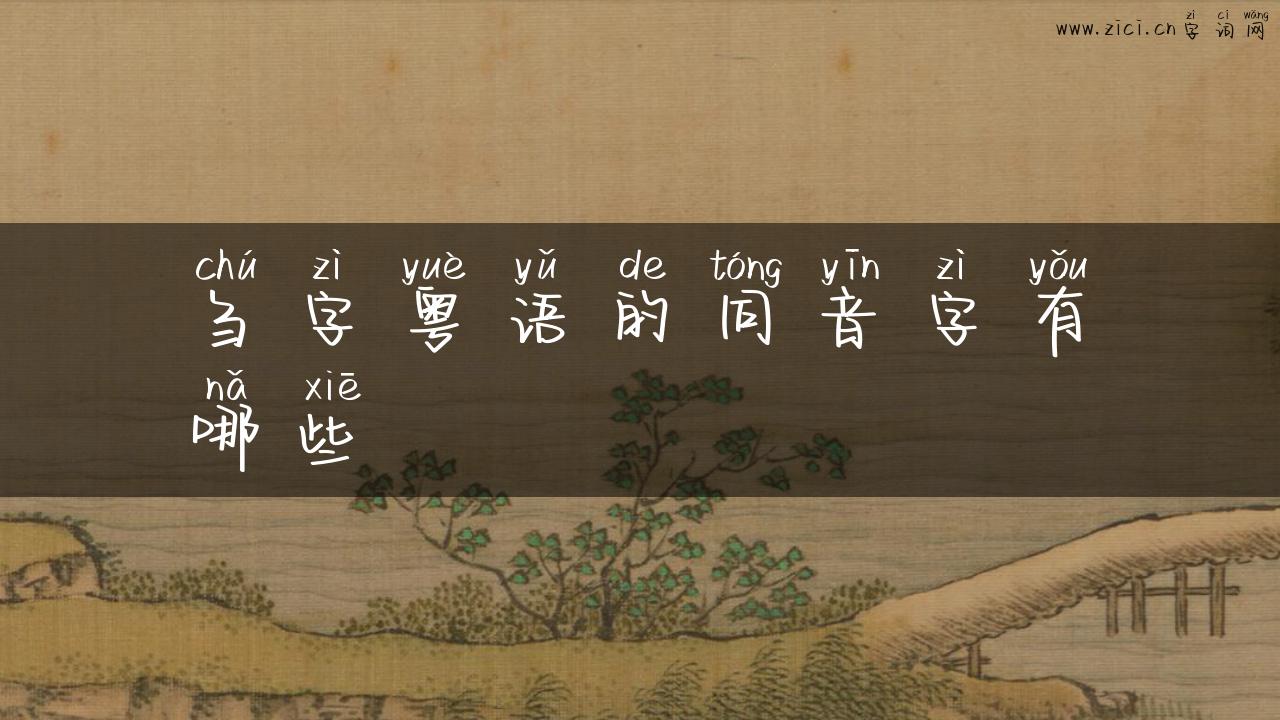 zì cí wǎng
www.zici.cn 字词网
chú zì yuè yǔ de tóng yīn zì yǒu
刍字粤语的同音字有
nǎ xiē
哪些